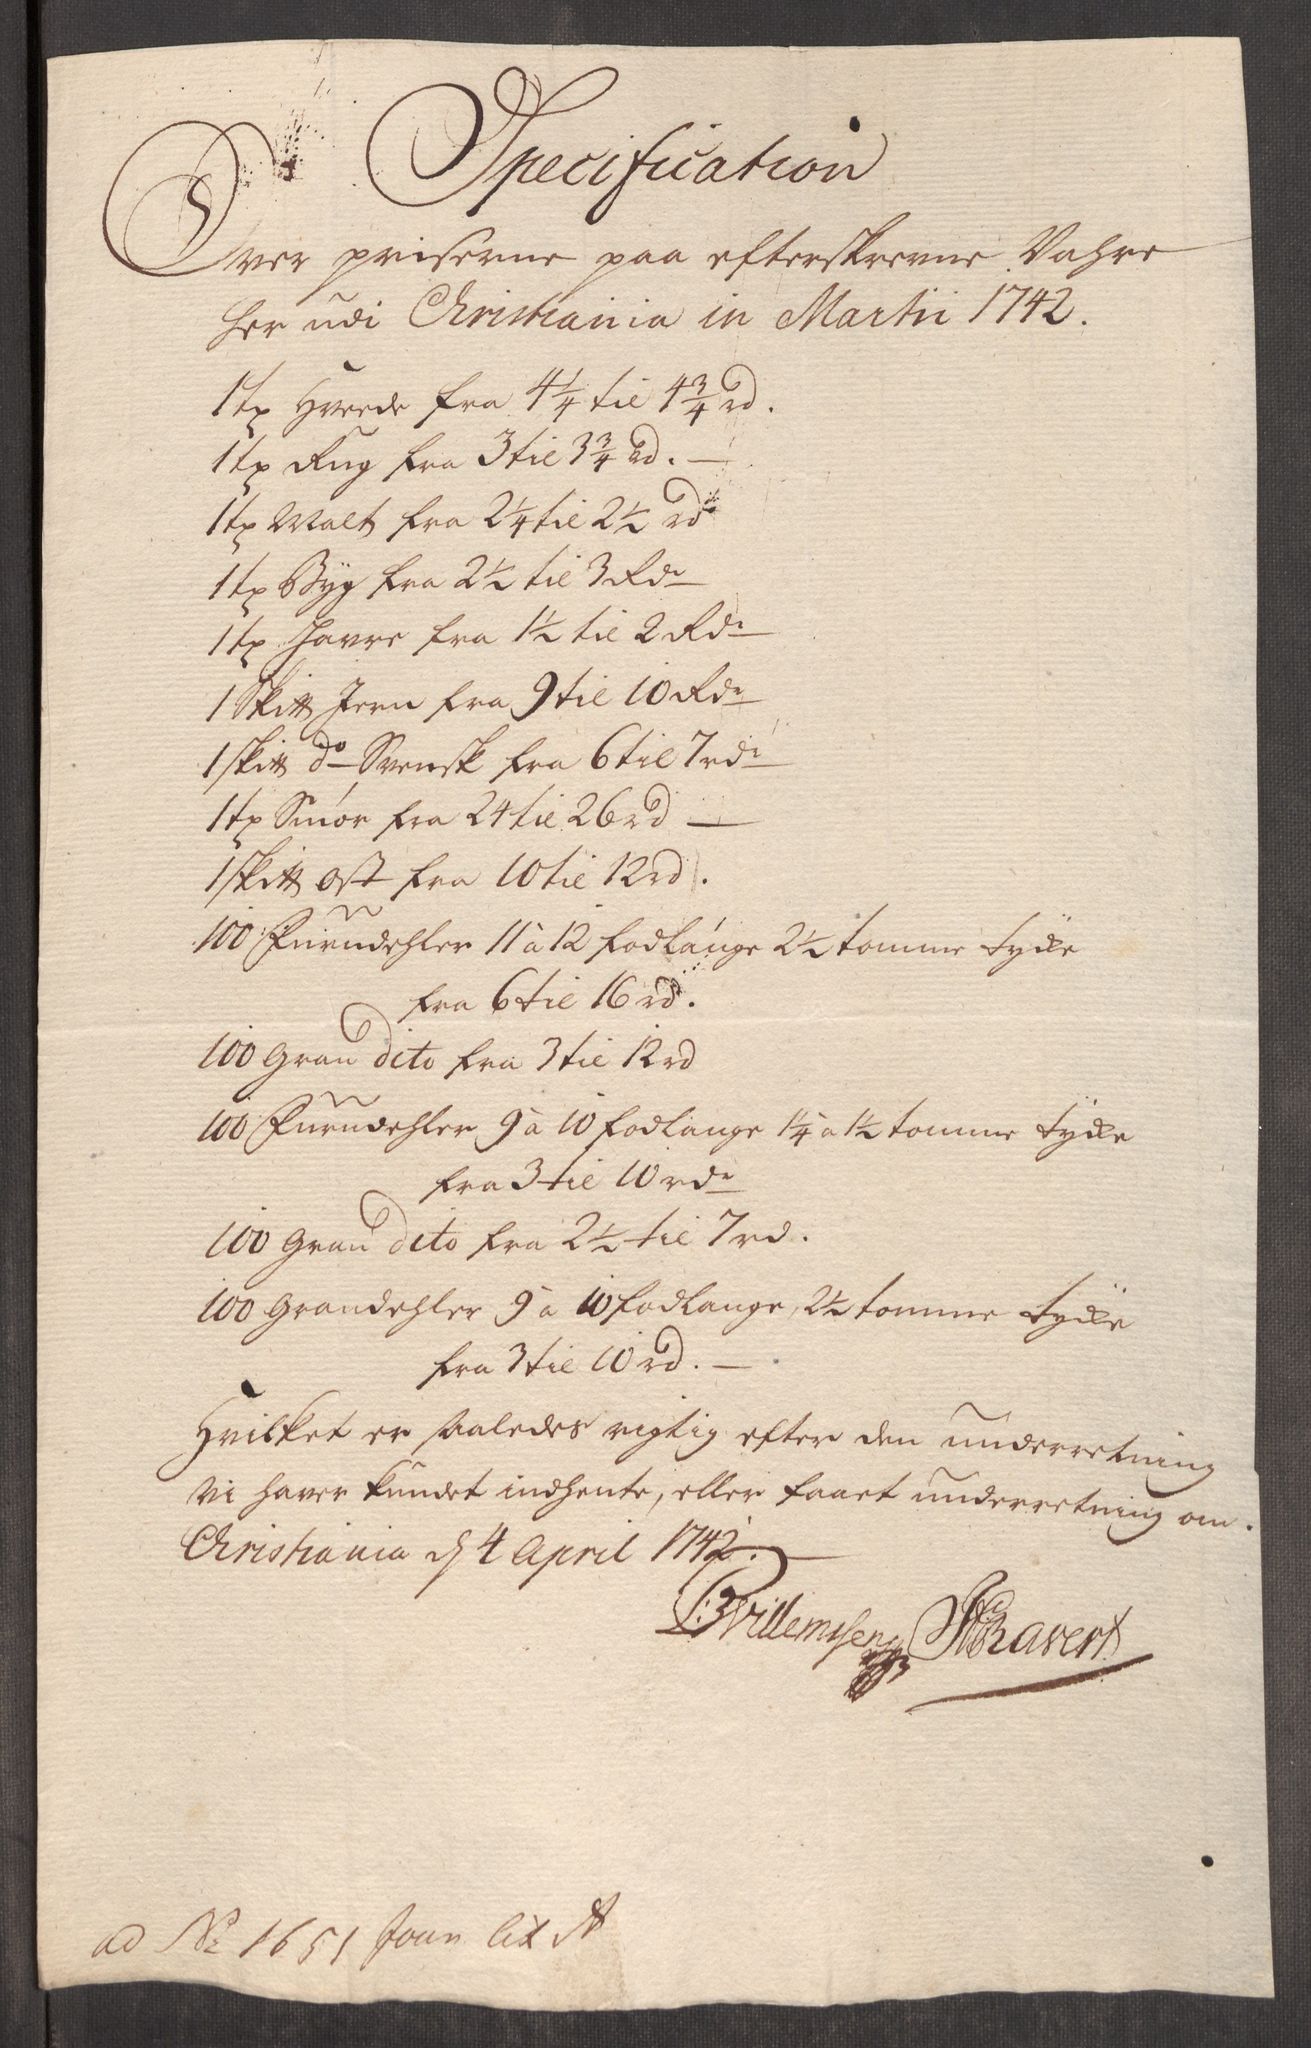 Specification
Over priserne paa efterskrevne Vahre
her udi Christiania in Martii 1742.
1 tø Hveede fra 4¼ til 4¾ rd.
1 tø Rug fra 3 til 3¾ rd. —
1 tø Malt fra 2¼ til 2½ rd
1 tø Byg fra 2½ til 3 Rdr
1 tø Havre fra 1½ til 2 Rdr
1 Skitt Jern fra 9 til 10 Rdr
1 skitt do Svensk fra 6 til 7 rdr
1 tø Smør fra 24 til 26 rd —
1 skitt ost fra 10 til 12 rd.
100 Furudehler 11 a 12 fodlange 2½ tomme tyke
fra 6 til 16 rd.
100 Gran dito fra 3 til 12 rd
100 Furudehler 9 a 10 fodlange 1¼ a 1½ tomme tyke
fra 3 til 10 rdr
100 Gran dito fra 2½ til 7 rd.
100 Grandehler 9 a 10 fodlange, 2½ tomme tyke
fra 3 til 10 rd. —
Hvilket er saaledes rigtig efter den underretning
vi haver kundet indhente, eller faaet underretning om.
Christiania d 4 April 1742.
Willemsen Ravert
ad No 1651 Journ lit A